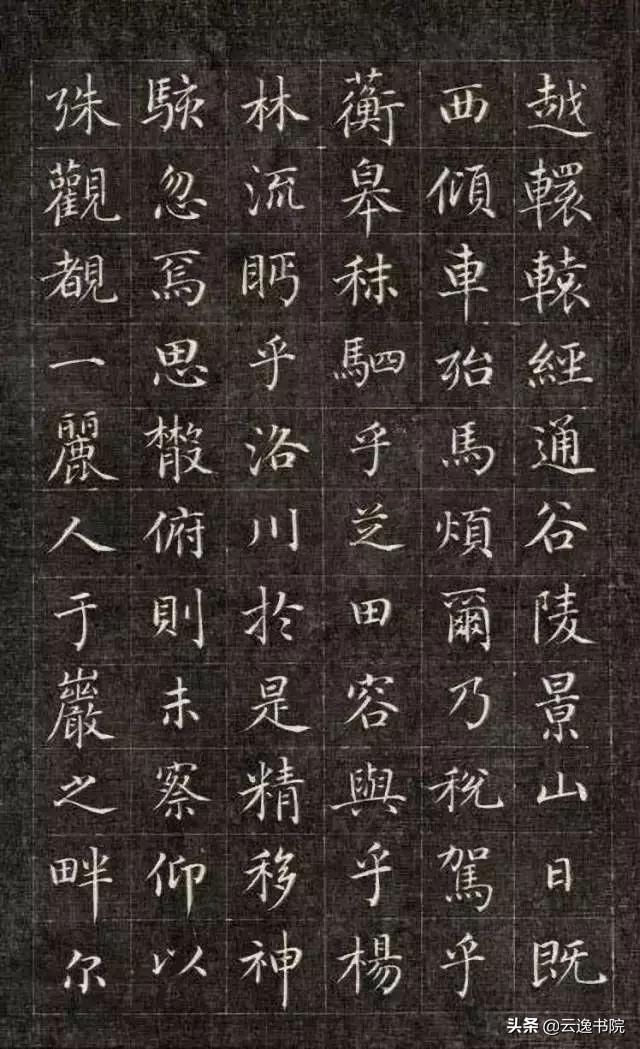 越轘轅經通谷陵景山日既
西傾車殆馬煩爾乃稅駕乎
蘅皋秣駟乎芝田容與乎楊
林流眄乎洛川於是精移神
駭忽焉思散俯則未察仰以
殊觀覩一麗人于巖之畔尔
头条@云逸书院